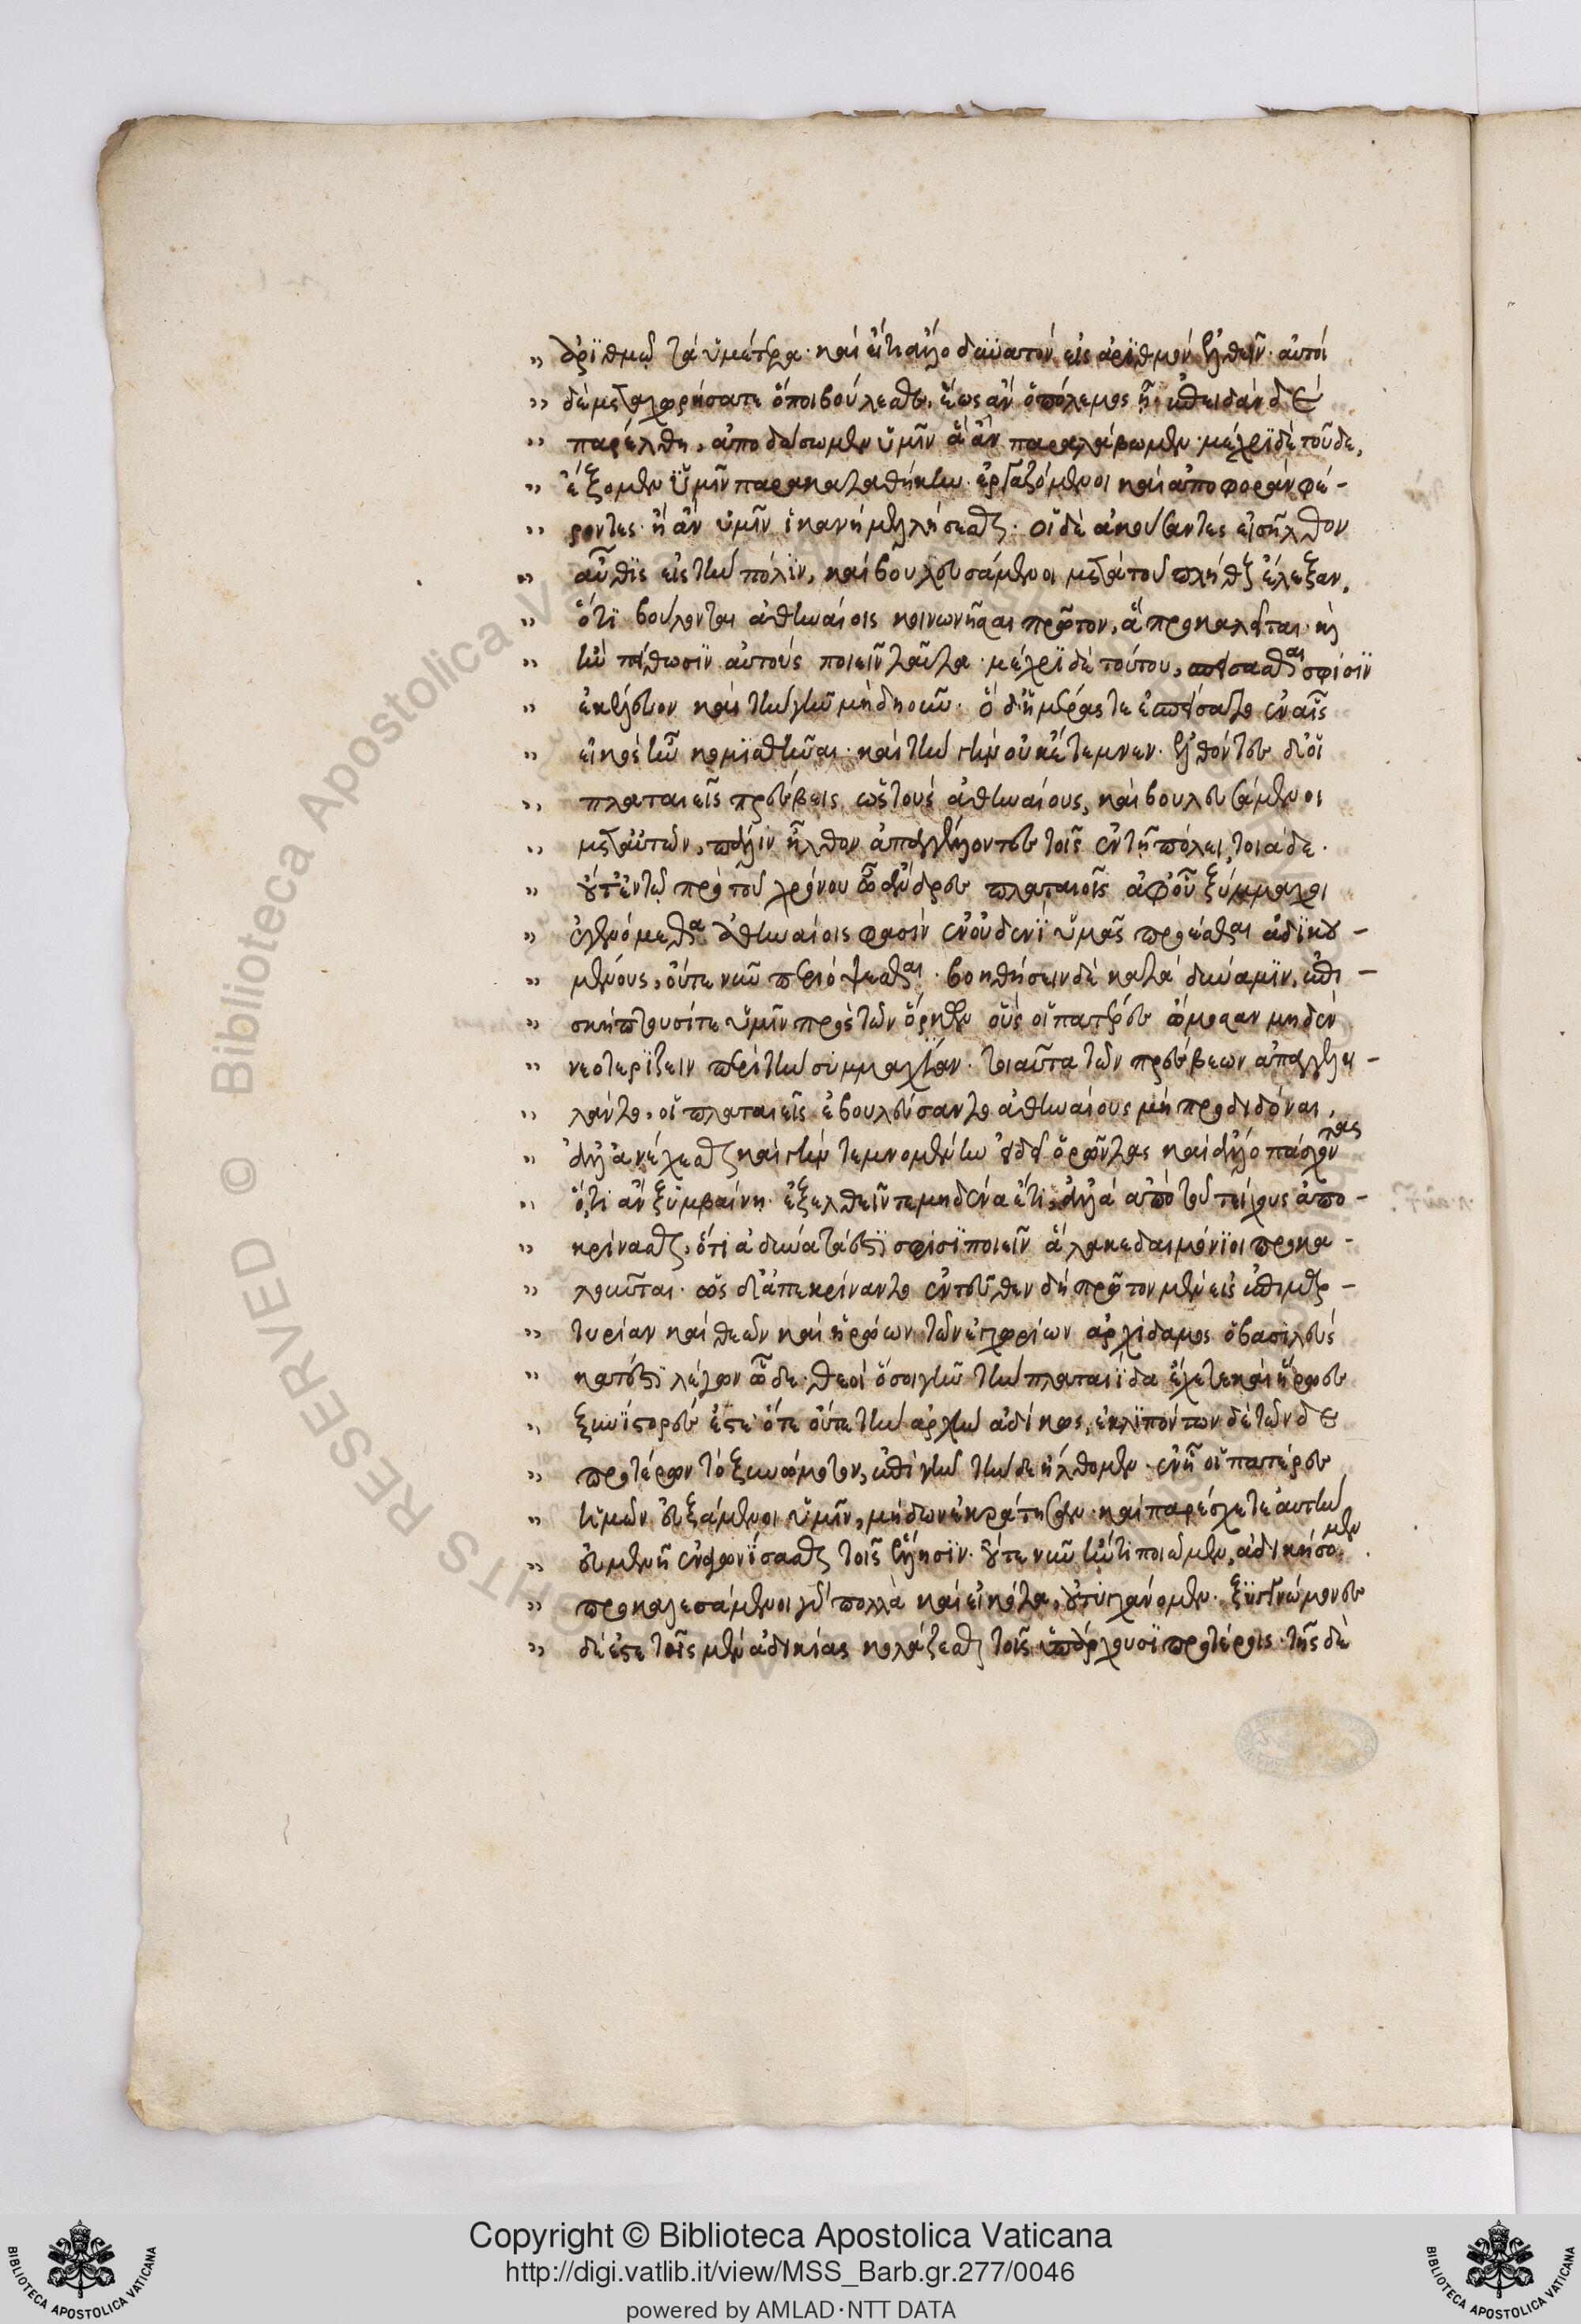 ” ἀρϊθμῷ τὰ ὑμέτερα· καὶ εἴ τι ἄλλο δυνατὸν εἰς ἀρϊθμὸν ἐλθεῖν· αὐτοὶ
” δὲ μεταχωρήσατε ὅποι βούλεσθε, ἕως ἂν ὁ πόλεμος ᾖ· ἐπειδὰν δὲ
” παρέλθη, ἀποδώσωμεν ὑμῖν ἃ ἂν παραλάβωμεν· μέχρϊ δὲ τοῦδε,
” ἕξομεν ὑμῖν παρακαταθήκην· ἐργαζόμενοι καὶ ἀποφορὰν φέ-
” ροντες· ἣ ἂν ὑμῖν ἱκανὴ μέλλη ἔσεσθαι· οἱ δὲ ἀκούσαντες εἰσῆλθον
” αὖθϊς εἰς τὴν πόλϊν, καὶ βουλευσάμενοι μετὰ τοῦ πλήθους ἔλεξαν,
” ὅτϊ βούλονται ἀθηναίοις κοινωνῆσαι πρῶτον, ἃ προκαλεῖται· καὶ
” ἢν πείθωσϊν αὐτοὺς ποιεῖν ταῦτα· μέχρϊ δὲ τούτου, σπείσασθαι σφίσϊν
” ἐκέλευον καὶ τὴν γῆν μὴ δηοῦν· ὁ δ' ἡμέρας τε ἐσπείσατο ἐν αἷς
” εἰκὸς ἦν κομϊσθῆναι· καὶ τὴν γῆν οὐκ ἔτεμνεν· ἐλθόντες δὲ οἱ
” πλαταιεῖς πρέσβεις ὡς τοὺς ἀθηναίους, καὶ βουλευσάμενοι
” μετ' αὐτῶν, πάλιν ἦλθον ἀπαγγέλλοντες τοῖς ἐν τῇ πόλει τοιάδε·
” οὔτ' ἐν τῷ πρὸ τοῦ χρόνου ὦ ἄνδρες πλαταιεῖς ἀφ' οὗ ξύμμαχοι
” ἐγενόμεθα ἀθηναίοις φασὶν ἐν οὐδενὶ ὑμᾶς προέσθαι ἀδϊκου-
” μένους, οὔτε νῦν περιόψεσθαι· βοηθήσειν δὲ κατὰ δύναμϊν, ἐπι-
” σκήπτουσί τε ὑμῖν πρὸς τῶν ὅρκων οὓς οἱ πατέρες ὤμοσαν μηδὲν
” νεοτερίζειν περὶ τὴν συμμαχίαν· τοιαῦτα τῶν πρέσβεων ἀπαγγει-
” λάντων, οἱ πλαταιεῖς ἐβουλεύσαντο ἀθηναίους μὴ προδιδόναι,
” ἀλλ' ἀνέχεσθαι καὶ γῆν τεμνομένην εἰ δεῖ ὁρῶντας καὶ ἄλλο πάσχοντας
” ὅ,τι ἂν ξυμβαίνη· ἐξελθεῖν τε μηδένα ἔτϊ, ἀλλὰ ἀπὸ τοῦ τείχους ἀπο-
” κρίνασθαι, ὅτϊ ἀδύνατά ἐστϊ σφίσϊ ποιεῖν ἃ λακεδαιμόνϊοι προκα-
” λοῦνται· ὡς δὲ ἀπεκρίναντο ἐντεῦθεν δὴ πρῶτον μὲν εἰς ἐπιμαρ-
” τυρίαν καὶ θεῶν καὶ ἡρώων τῶν ἐγχωρίων ἀρχίδαμος ὁ βασιλεὺς
” κατέστη λέγων ὧδε· θεοὶ ὅσοι γῆν τὴν πλαταιΐδα ἔχετε καὶ ἥρωες
” ξυνΐστορές ἐστε· ὅτι οὔτε τὴν ἀρχὴν ἀδίκως, ἐκλϊπόντων δὲ τῶνδε
” προτέρων τὸ ξυνώμοτον, ἐπὶ γῆν τήνδε ἤλθομεν· ἐν ᾗ οἱ πατέρες
” ἡμῶν εὐξάμενοι ὑμῖν, μήδων ἐκράτησαν· καὶ παρέσχετε αὐτὴν
” εὐμενῆ ἐναγωνίσασθαι τοῖς ἕλλησϊν· οὔτε νῦν ἤν τι ποιῶμεν, ἀδικήσομεν·
” προκαλεσάμενοι γὰρ πολλὰ καὶ εἰκότα, οὐ τυγχάνομεν· ξυγγνώμονες
” δὲ ἐστε τοῖς μὲν ἀδικίας κολάζεσθαι τοῖς ὑπάρχουσϊ προτέροις· τῆς δὲ
Copyright © Biblioteca Apostolica Vaticana
http://digi.vatlib.it/view/MSS_Barb.gr.277/0046
powered by AMLAD·NTT DATA